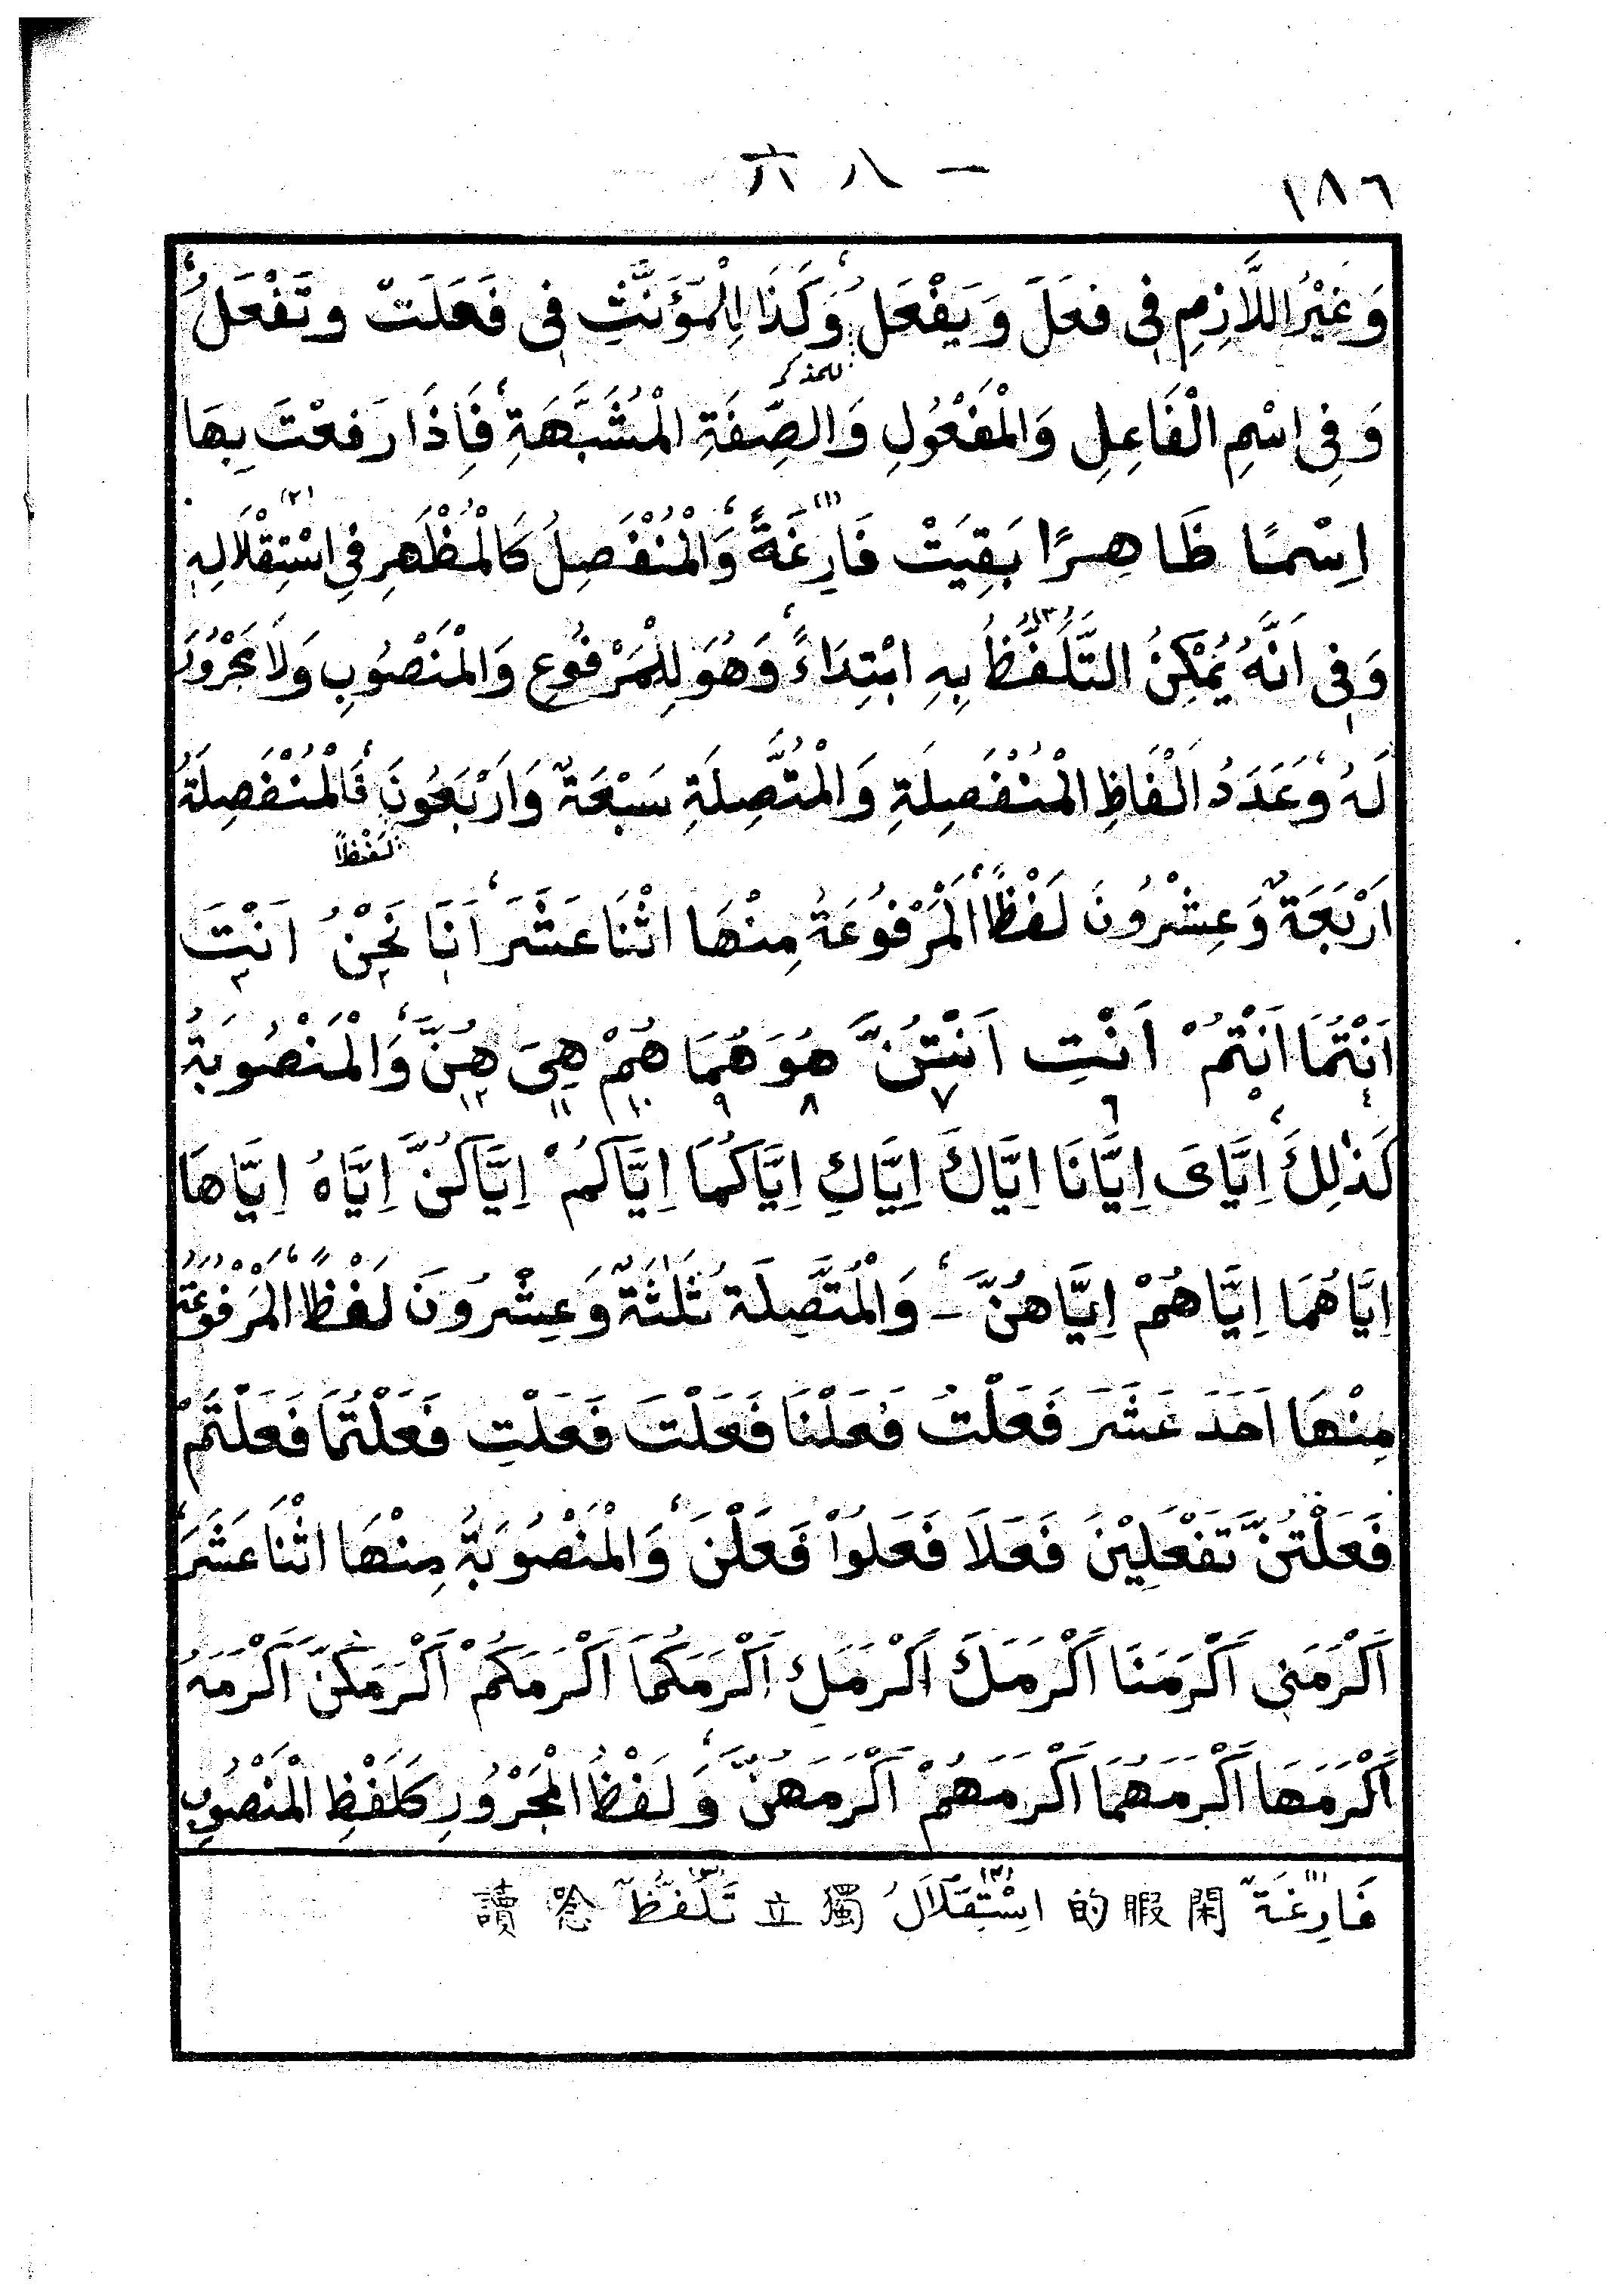 ١٨٦ 一八六
وَغَيْرُ اللَّازِمِ فِي فَعَلَ وَيَفْعَلُ، وَكَذَا الْمُؤَنَّثِ فِي فَعَلَتْ وتَفْعَلُ،
للمذكر
وَفِي اسْمِ الْفَاعِلِ وَالْمَفْعُولِ وَالصِّفَةِ الْمُشَبَّهَةِ، فَاِذَا رَفَعْتَ بِهَا
اِسْمًا ظَاهِرًا بَقِيَتْ فَارِغَةً(١)، وَالْمُنْفَصِلُ كَالْمُظْهَرِ فِي اسْتِقْلَالِهِ(٢)
وَفِي اَنَّهُ يُمْكِنُ التَّلَفُّظُ(٣) بِهِ ابْتِدَاءً، وَهُوَ لِلْمَرْفُوعِ وَالْمَنْصُوبِ وَلَا مَجْرُورَ
لَهُ، وَعَدَدُ اَلْفَاظِ الْمُنْفَصِلَةِ وَالْمُتَّصِلَةِ سَبْعَةٌ وَاَرْبَعُونَ لَفْظًا، فَالْمُنْفَصِلَةُ
اَرْبَعَةٌ وَعِشْرُونَ لَفْظًا، اَلْمَرْفُوعَةُ مِنْهَا اثْنَا عَشَرَ، اَنَا ١ نَحْنُ ٢ اَنْتَ ٣
اَنْتُمَا ٤ اَنْتُمْ ٥ اَنْتِ ٦ اَنْتُنَّ ٧ هُوَ ٨ هُمَا ٩ هُمْ ١٠ هِيَ ١١ هُنَّ ١٢، وَالْمَنْصُوبَةُ
كَذٰلِكَ، اِيَّاىَ اِيَّانَا اِيَّاكَ اِيَّاكِ اِيَّاكُمَا اِيَّاكُمْ اِيَّاكُنَّ اِيَّاهُ اِيَّاهَا
اِيَّاهُمَا اِيَّاهُمْ اِيَّاهُنَّ -، وَالْمُتَّصِلَة ثَلٰثَةٌ وَعِشْرُونَ لَفْظًا، اَلْمَرْفُوعَةُ
مِنْهَا اَحَدَ عَشَرَ فَعَلْتُ فَعَلْنَا فَعَلْتَ فَعَلْتِ فَعَلْتُمَا فَعَلْتُمْ
فَعَلْتُنَّ تَفْعَلِيْنَ فَعَلَا فَعَلُوْا فَعَلْنَ، وَالْمَنْصُوبَةُ مِنْهَا اثْنَا عَشَرَ،
اَكْرَمَنِي اَكْرَمَنَا اَكْرَمَكَ اَكْرَمَكِ اَكْرَمَكُمَا اَكْرَمَكُمْ اَكْرَمَكُنَّ اَكْرَمَهُ
اَكْرَمَهَا اَكْرَمَهُمَا اَكْرَمَهُمْ اَكْرَمَهُنَّ، وَلَفْظُ الْمَجْرُورِ كَلَفْظِ الْمَنْصُوبِ
(١) فَارِغَةٌ 閑暇的 (٢) اِسْتِقْلَالٌ 獨立 (٣) تَلَفُّظٌ 念讀